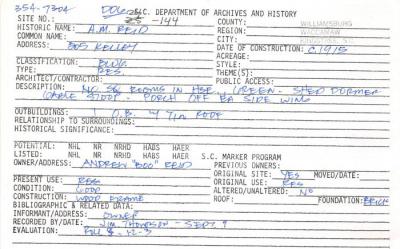 354-7304 S.C. DEPARTMENT OF ARCHIVES AND HISTORY
SITE NO.: -144 COUNTY: WILLIAMSBURG
HISTORIC NAME: A.M. REID REGION: WACCAMAW
COMMON NAME: CITY: KINGSTREE, S.C.
ADDRESS: 805 KELLEY DATE OF CONSTRUCTION: C. 1915
ACREAGE:
CLASSIFICATION: BLDG STYLE:
TYPE: RES THEME(S):
ARCHITECT/CONTRACTOR: PUBLIC ACCESS:
DESCRIPTION: ROOMS IN HSE, GREEN - SHED DORMER
GABLE STOOP - PORCH OFF EA SIDE WING
OUTBUILDINGS: 1 O.B. W/ TIN ROOF
RELATIONSHIP TO SURROUNDINGS:
HISTORICAL SIGNIFICANCE:
POTENTIAL: NHL NR NRHD HABS HAER
LISTED: NHL NR NRHD HABS HAER S.C. MARKER PROGRAM
OWNER/ADDRESS: ANDREW "BOO" REID PREVIOUS OWNERS:
ORIGINAL SITE: YES MOVED/DATE:
PRESENT USE: RES ORIGINAL USE: RES
CONDITION: GOOD ALTERED/UNALTERED: NO
CONSTRUCTION: WOOD FRAME ROOF: FOUNDATION: BRICK
BIBLIOGRAPHIC & RELATED DATA:
INFORMANT/ADDRESS: OWNER
RECORDED BY/DATE: JIM THOMPSON - SEPT. 9
EVALUATION: BILL 12-3